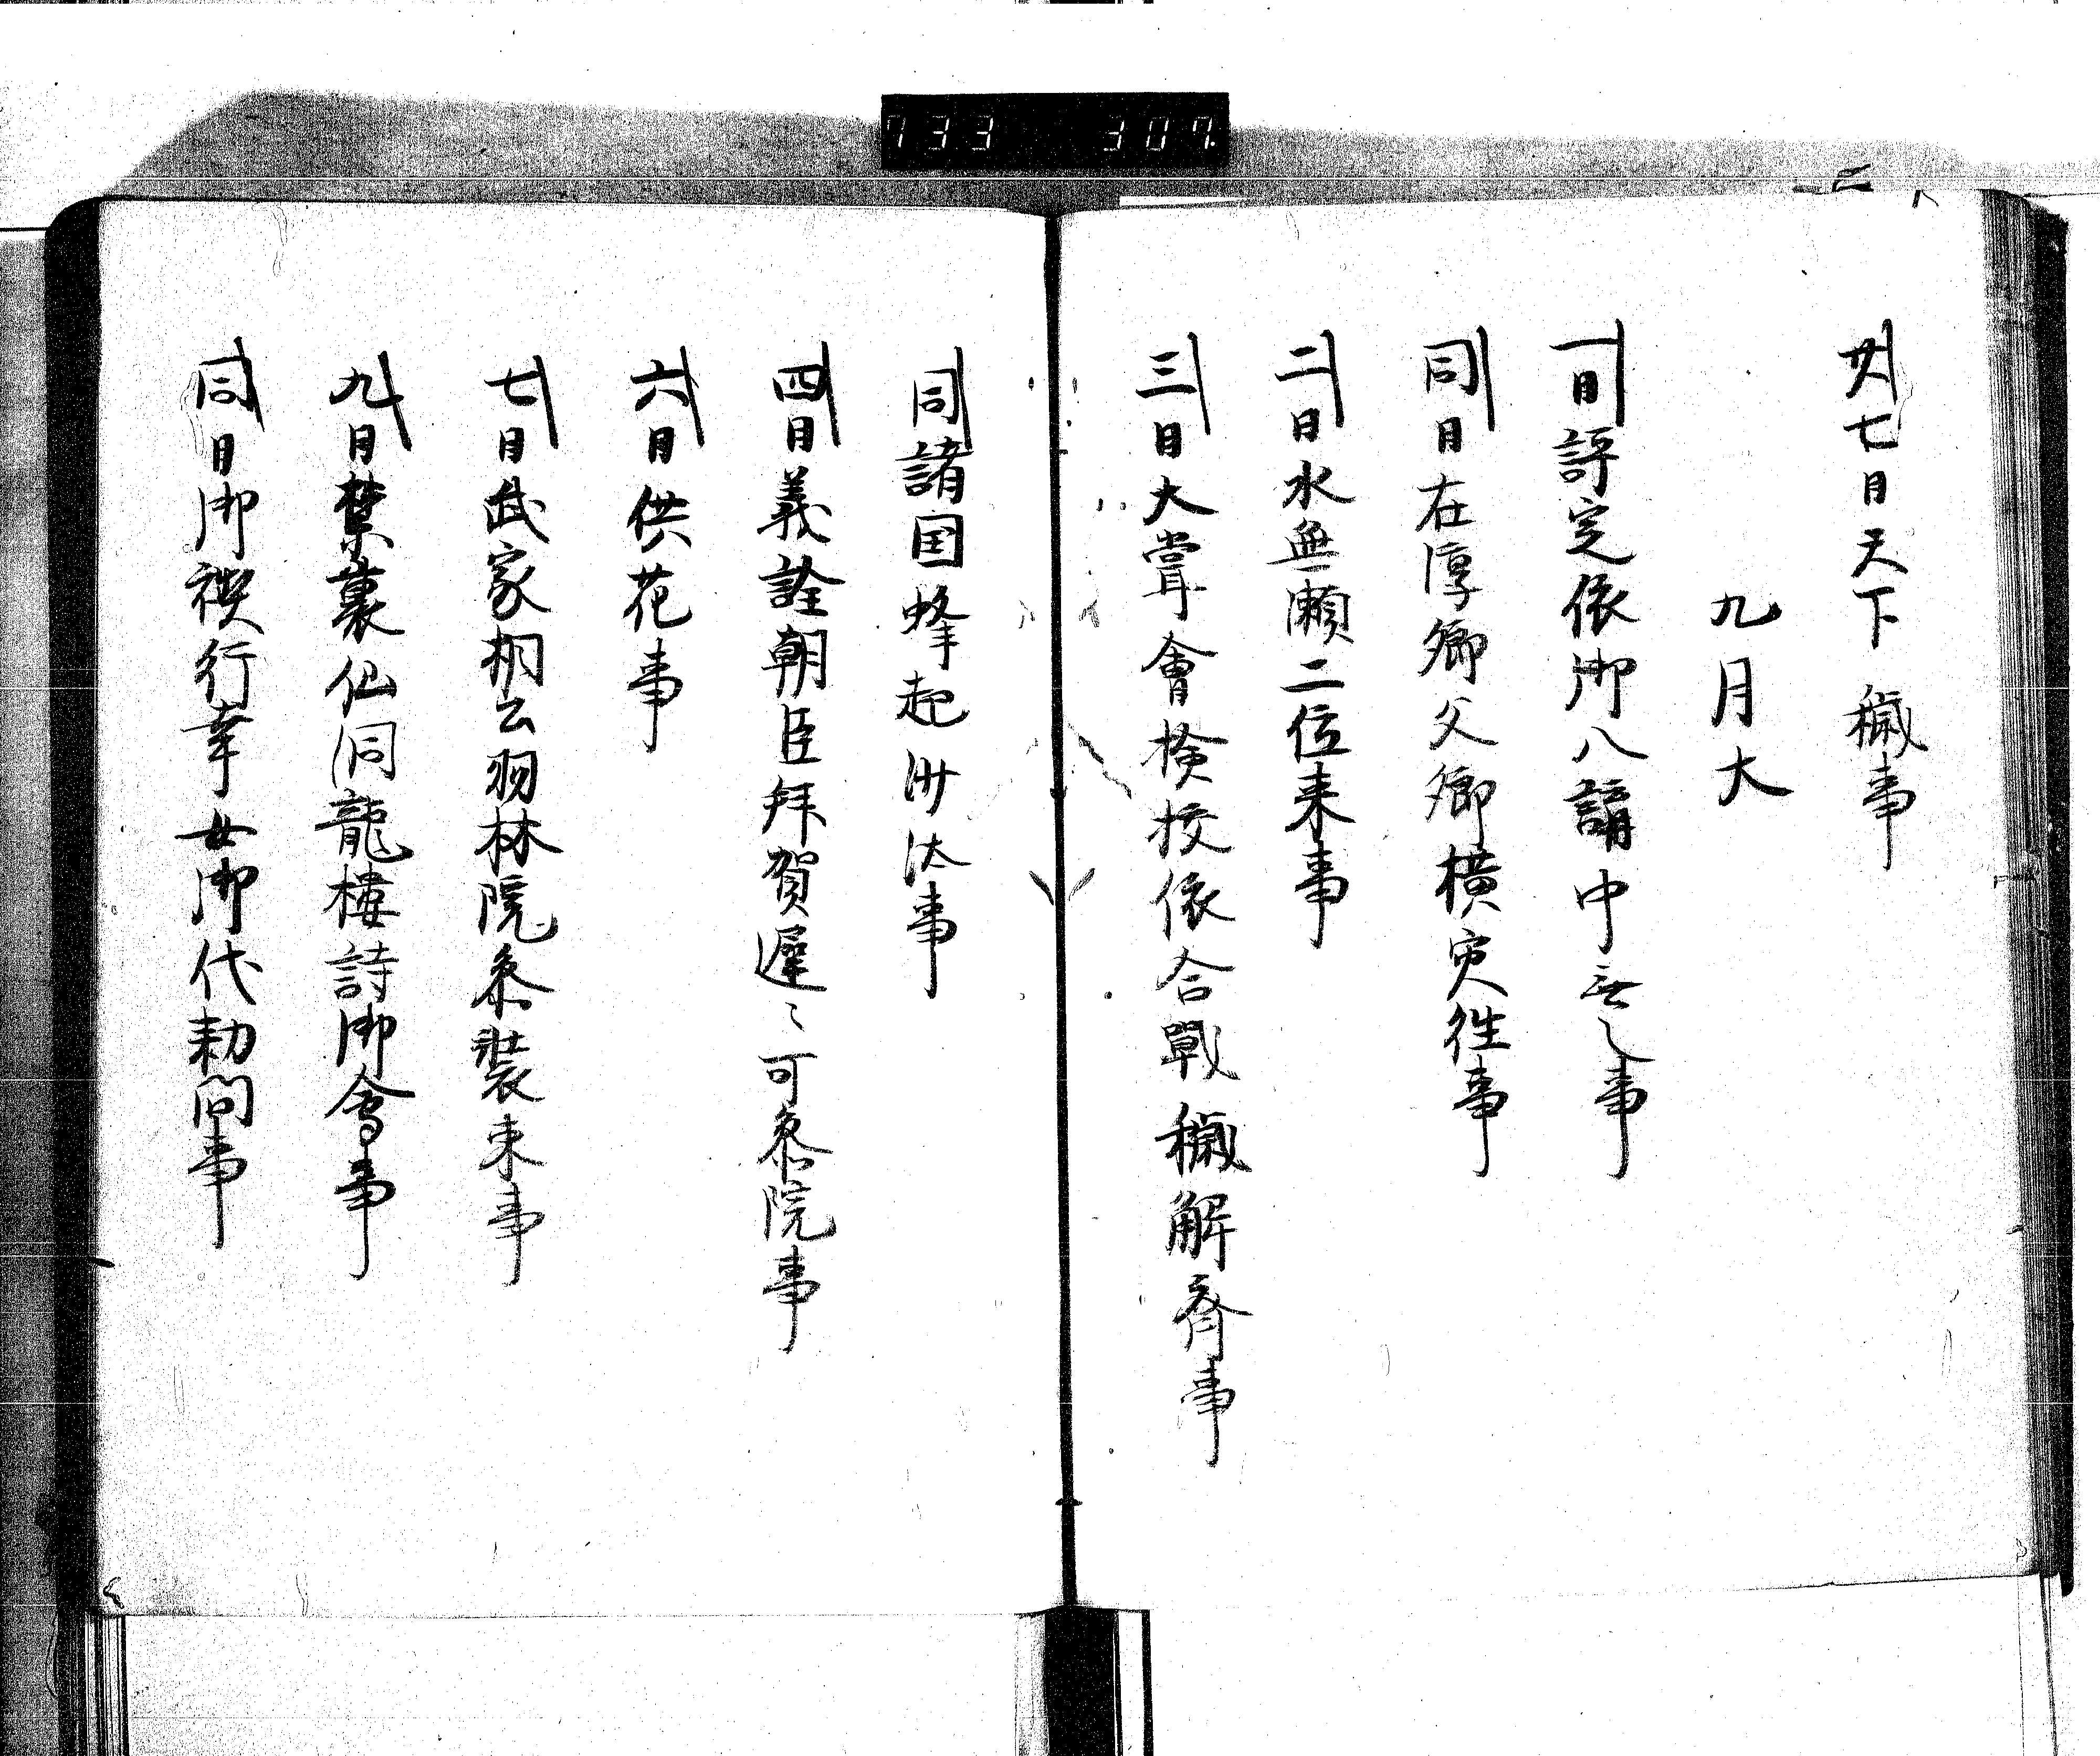 733 307.
廿七日天下穢事
九月大
一日評定依御八講中無之事
同日在淳卿父卿横災往事
二日水無瀬二位来事
三日大嘗會検校依合戦穢解斎事
同諸国蜂起沙汰事
四日義詮朝臣拜賀遅〻可参院事
六日供花事
七日武家相公羽林院参装束事
九日禁裏仙洞龍樓詩御會事
同日御禊行幸女御代勅問事